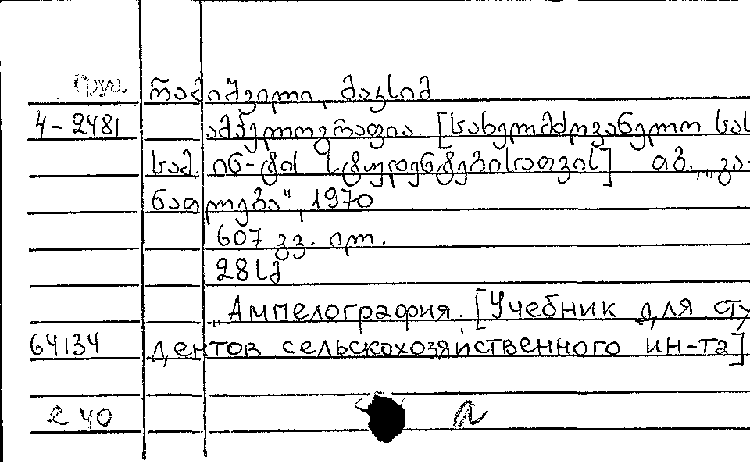 რამიშვილი, მაქსიმ
4-2481 ამპელოგრაფია [სახელმძღვანელო სას.
სამ. ინ-ტის სტუდენტებისათვის] თბ., „გა-
ნათლება", 1970
607 გვ. ილ.
28 სმ
„Ампелография. [Учебник для сту
64134 дентов сельскохозяйственного ин-та]
2 40